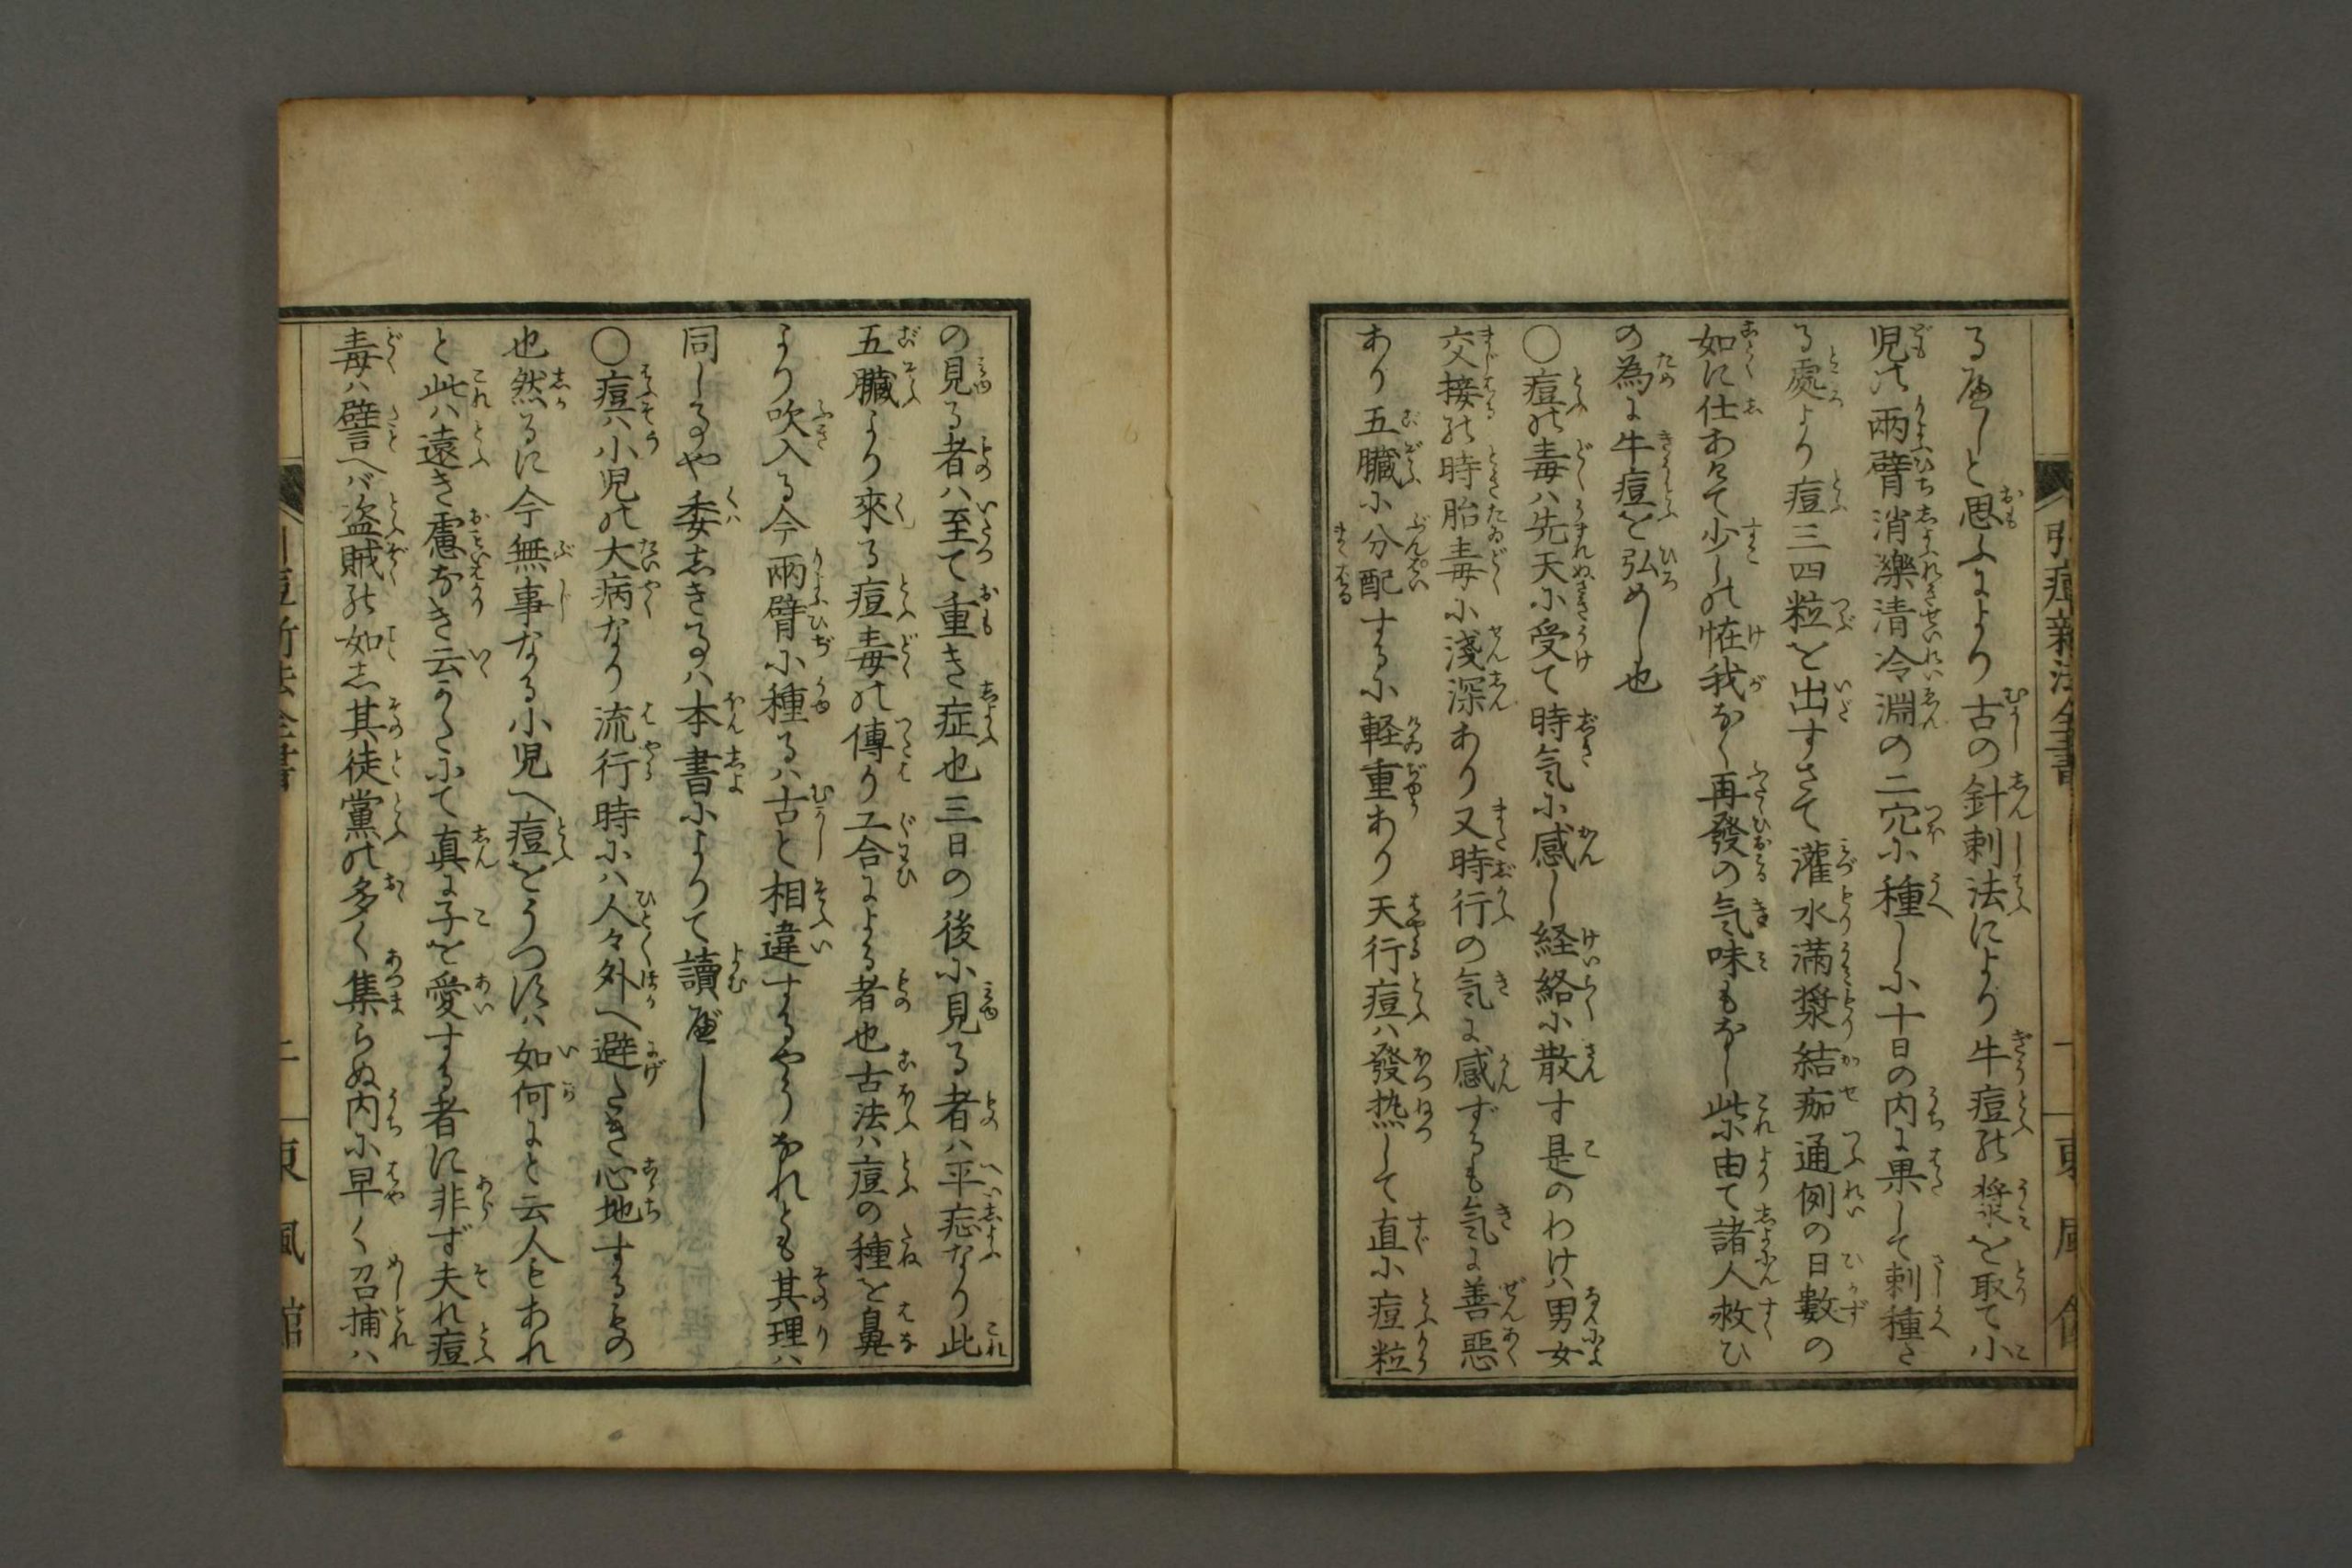 る處しと思ふより古の針刺法により牛痘の漿を取て小
児の兩臂消濼清冷淵の二穴に種しに十日の内に果して刺種さ
る處より痘三四粒を出すさて灌水満漿結痂通例の日數の
如に仕あげて少しの怪我なく再發の気味もなし此に由て諸人救ひ
の為に牛痘を弘めし也
〇痘の毒ハ先天に受て時気に感し経絡に散す是のわけハ男女
交接の時胎毒に淺深あり又時行の気に感ずるも気に善惡
あり五臓に分配するに軽重あり天行痘ハ發热して直に痘粒
の見る者ハ至て重き症也三日の後に見る者ハ平症なり此
五臓より來る痘毒の傳り工合による者也古法ハ痘の種を鼻
より吹入る今兩臂に種るハ古と相違するやうなれとも其理ハ
同し事や委しき事ハ本書によりて讀べし
〇痘ハ小児の大病なり流行時にハ人々外へ避たき心地するもの
也然るに今無事なる小児へ痘をうつすハ如何にと云人もあれ
と此ハ遠き慮なき云かたにて真に子を愛する者に非ず夫れ痘
毒ハ譬へバ盗賊の如し其徒黨の多く集らぬ内に早く召捕ハ
引痘新法全書
東風館